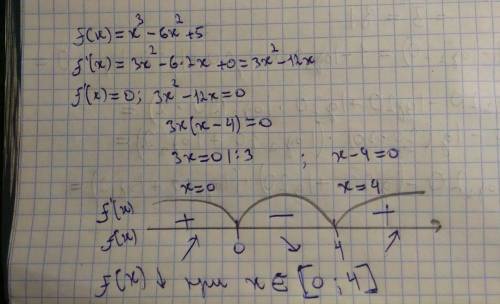 f(x)=x³-6x²+5
f'(x)=3x²-6·2x+0=3x²-12x
f'(x)=0; 3x²-12x=0
3x(x-4)=0
3x=0 |:3 ; x-4=0
x=0 x=4
f'(x) + - +
f(x) ↗ 0 ↘ 4 ↗
f(x) ↓ при x∈[0;4]